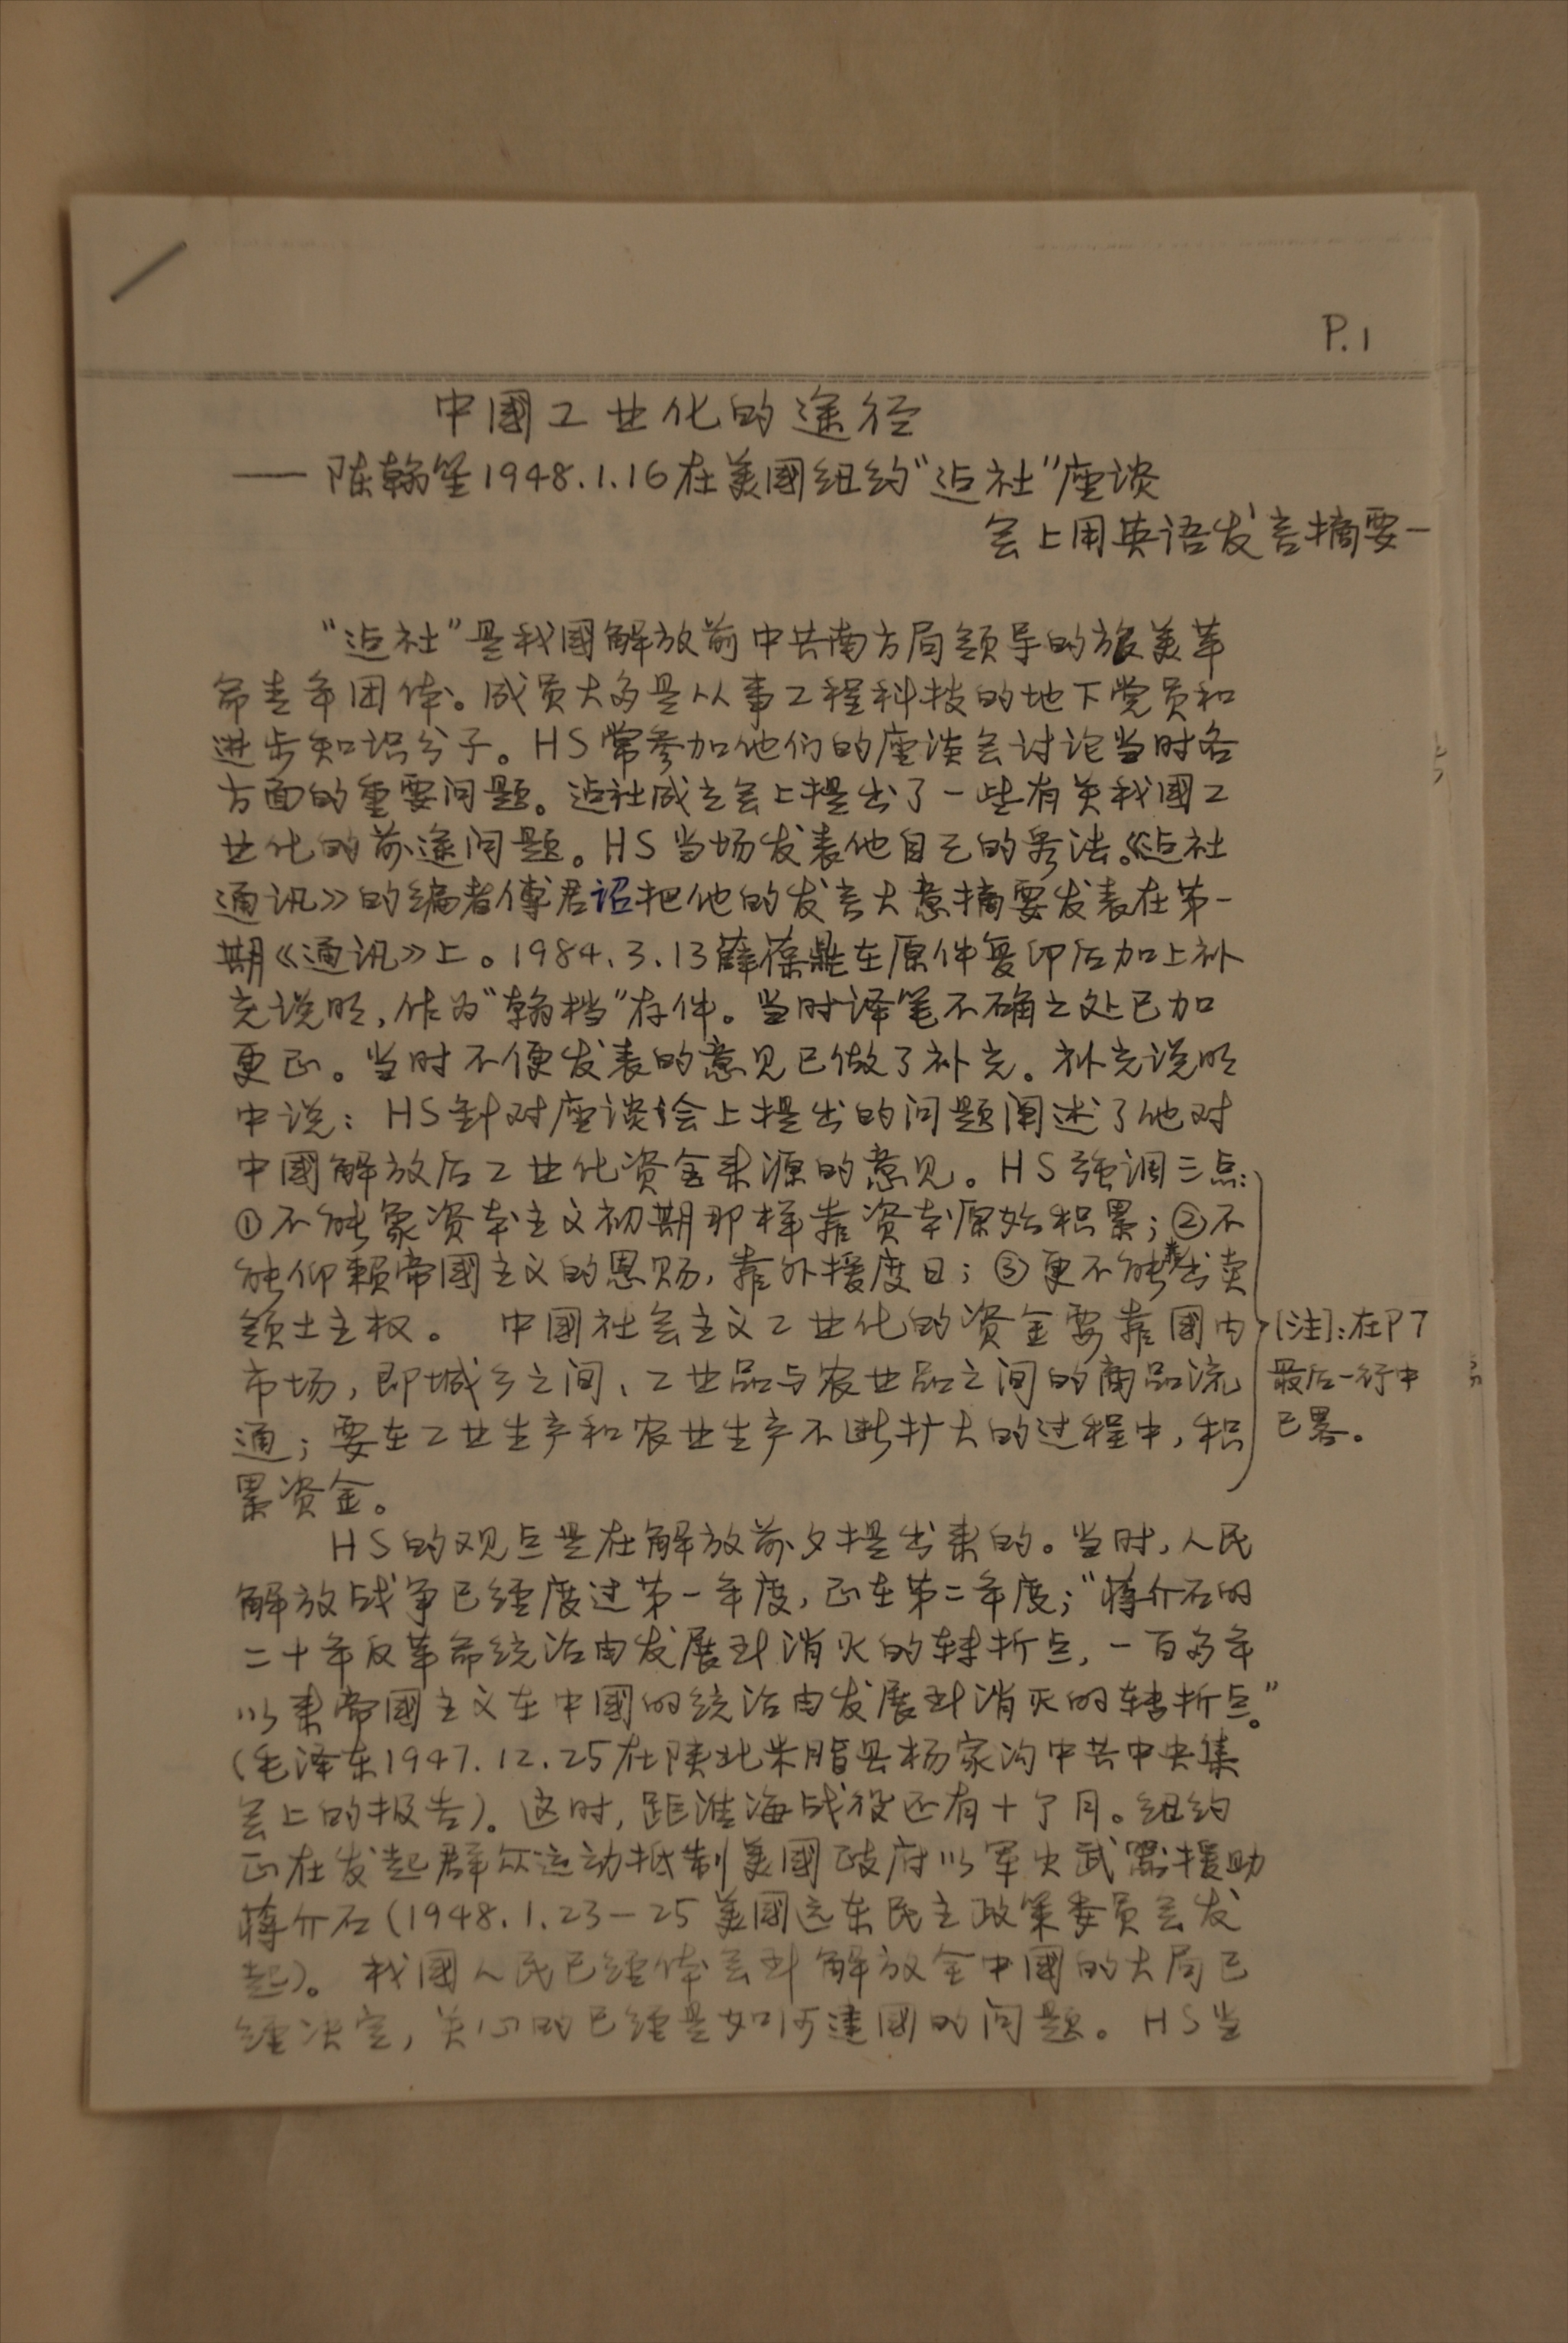 P.1
中國工业化的途径
——陈翰笙1948.1.16在美國纽约“迠社”座谈
会上用英语发言摘要—
“迠社”是我國解放前中共南方局领导的旅美革
命青年团体。成员大多是从事工程科技的地下党员和
进步知识分子。HS常参加他们的座谈会讨论当时各
方面的重要问题。迠社成立会上提出了一些有关我國工
业化的前途问题。HS当场发表他自己的看法。《迠社
通讯》的编者傅君诏把他的发言大意摘要发表在第一
期《通讯》上。1984.3.13薛葆鼎在原件复印后加上补
充说明,作为“翰档”存件。当时译笔不确之处已加
更正。当时不便发表的意见已做了补充。补充说明
中说:HS针对座谈会上提出的问题阐述了他对
中國解放后工业化资金来源的意见。HS强调三点:
①不能象资本主义初期那样靠资本原始积累;②不
能仰赖帝國主义的恩赐,靠外援度日;③更不能靠出卖
领土主权。 中國社会主义工业化的资金要靠國内
市场,即城乡之间、工业品与农业品之间的商品流
通;要在工业生产和农业生产不断扩大的过程中,积
累资金。
[注]:在P7
最后一行中
已畧。
HS的观点是在解放前夕提出来的。当时,人民
解放战争已经度过第一年度,正在第二年度;“蒋介石的
二十年反革命统治由发展到消灭的转折点,一百多年
以来帝國主义在中國的统治由发展到消灭的转折点。”
(毛泽东1947.12.25在陕北米脂县杨家沟中共中央集
会上的报告)。这时,距淮海战役还有十个月。纽约
正在发起群众运动抵制美國政府以军火武器援助
蒋介石(1948.1.23—25美國远东民主政策委员会发
起)。我國人民已经体会到解放全中國的大局已
经决定,关心的已经是如何建國的问题。HS当